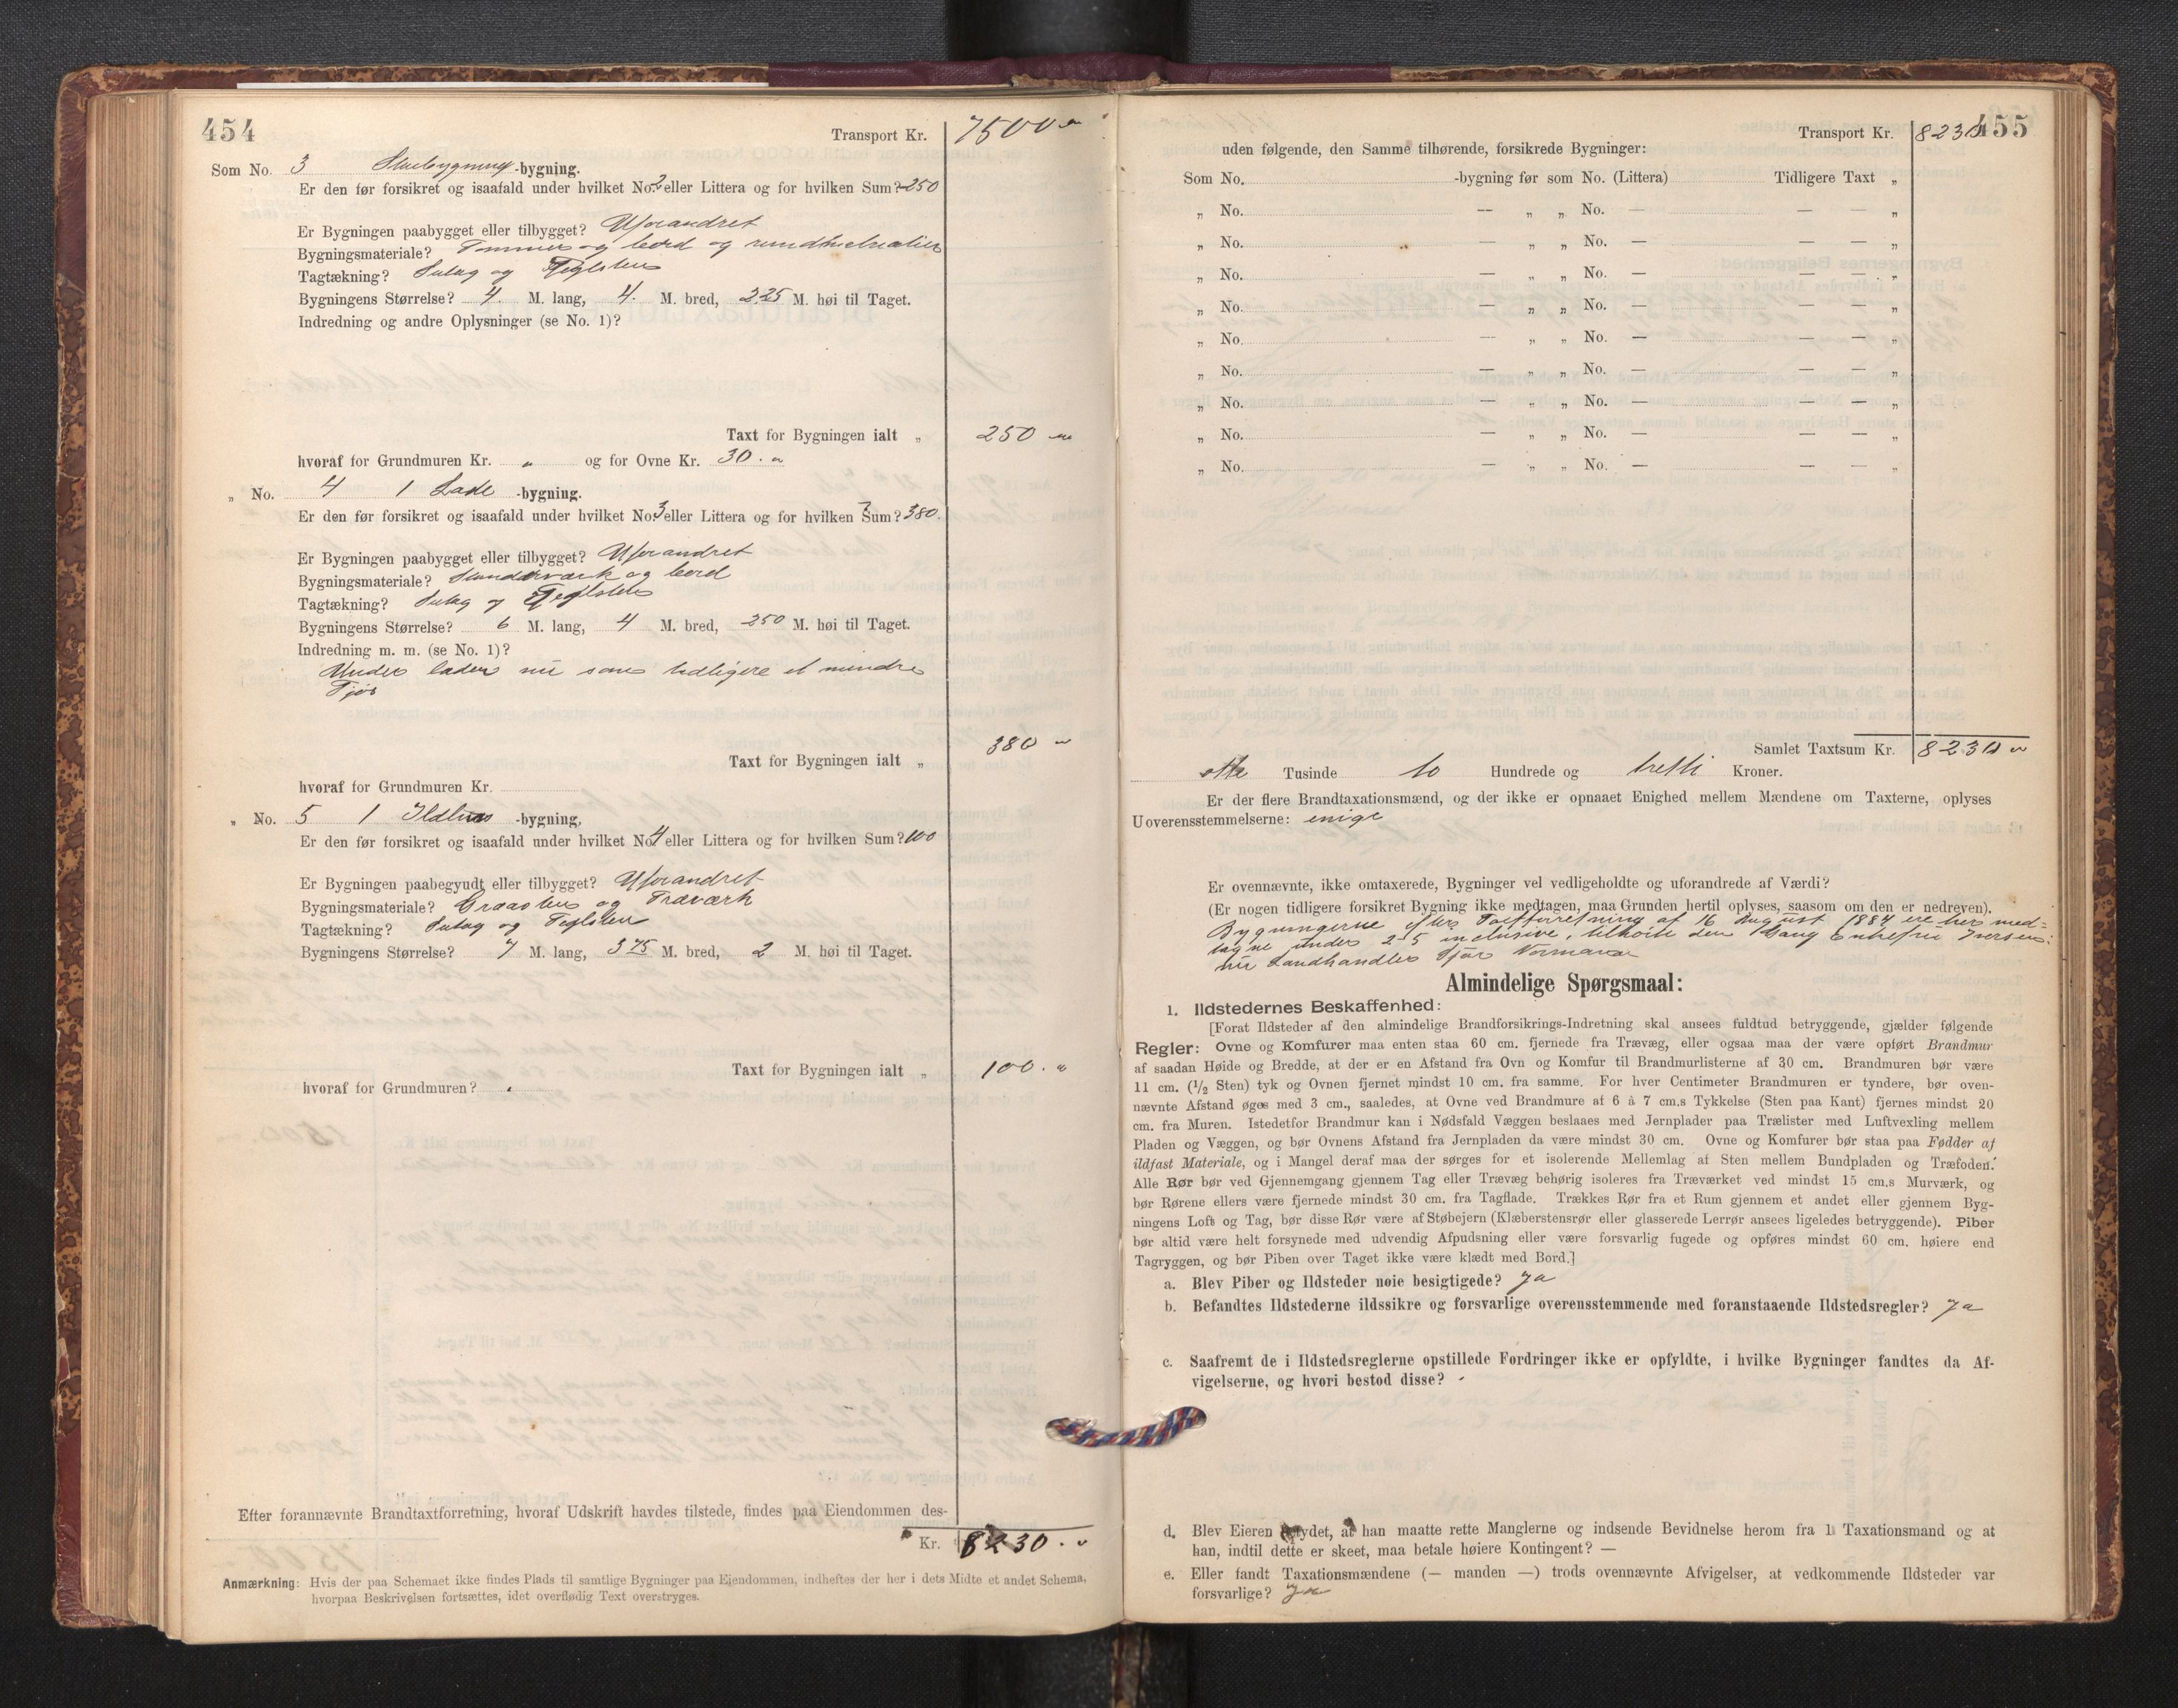 454
Transport Kr. 7500 "
Som No. 3 -bygning.
Er den før forsikret og isaafald under hvilket No. 2 eller Littera og for hvilken Sum? 250
Er Bygningen paabygget eller tilbygget? Uforandret
Bygningsmateriale? Tømmer og bord og
Tagtækning? Sutag og Teglsten
Bygningens Størrelse? 4. M. lang, 4. M. bred, 225 M. høi til Taget.
Indredning og andre Oplysninger (se No. 1)?
Taxt for Bygningen ialt „ 250 "
hvoraf for Grundmuren Kr. " og for Ovne Kr. 30. "
„ No. 4 1 Lade -bygning.
Er den før forsikret og isaafald under hvilket No. 3 eller Littera og for hvilken Sum? 380.
Er Bygningen paabygget eller tilbygget? Uforandret
Bygningsmateriale? Stenderværk og bord
Tagtækning? Sutag og Teglsten
Bygningens Størrelse? 6 M. lang, 4 M. bred, 250 M. høi til Taget.
Indredning m. m. (se No. 1)?
Under laden nu som tidligere et mindre
Fjøs
380 "
Taxt for Bygningen ialt „
hvoraf for Grundmuren Kr.
„ No. 5 1 Ildhus -bygning,
Er den før forsikret og isaafald under hvilket No. 4 eller Littera og for hvilken Sum? 100
Er Bygningen paabegyudt eller tilbygget? Uforandret
Bygningsmateriale? Graasten og Træværk
Tagtækning? Sutag og Teglsten
Bygningens Størrelse? 7 M. lang, 375 M. bred, 2 M. høi til Taget.
Taxt for Bygningen ialt „ 100. "
hvoraf for Grundmuren?
Efter forannævnte Brandtaxtforretning, hvoraf Udskrift havdes tilstede, findes paa Eiendommen des-
Kr. 8230. "
Anmærkning: Hvis der paa Schemaet ikke findes Plads til samtlige Bygninger paa Eiendommen, indheftes der her i dets Midte et andet Schema,
hvorpaa Beskrivelsen fortsættes, idet overflødig Text overstryges.
Transport Kr. 8230 455
uden følgende, den Samme tilhørende, forsikrede Bygninger:
Som No. -bygning før som No. (Littera) Tidligere Taxt „
„ No. — „ „ No. — — — „
„ No. — „ „ No. — — — „
„ No. — „ „ No. — — — „
„ No. — „ „ No. — — — „
„ No. — „ „ No. — — — „
„ No. — „ „ No. — — — „
„ No. — „ „ No. — — — „
„ No. — „ „ No. — — — „
„ No. — „ „ No. — — — „
Samlet Taxtsum Kr. 8230 "
otte Tusinde to Hundrede og tretti Kroner.
Er der flere Brandtaxationsmænd, og der ikke er opnaaet Enighed mellem Mændene om Taxterne, oplyses
Uoverensstemmelserne: enige
Er ovennævnte, ikke omtaxerede, Bygninger vel vedligeholdte og uforandrede af Værdi?
(Er nogen tidligere forsikret Bygning ikke medtagen, maa Grunden hertil oplyses, saasom om den er nedreven).
Bygningerne efter Taxtforretning af 16 August 1884 ere her med-
tagne under 2-5 inclusive, tilhørte den Gang Enkefru Iversen:
nu Landhandler
Almindelige Spørgsmaal:
1. Ildstedernes Beskaffenhed:
[Forat Ildsteder af den almindelige Brandforsikrings-Indretning skal ansees fuldtud betryggende, gjælder følgende
Regler: Ovne og Komfurer maa enten staa 60 cm. fjernede fra Trævæg, eller ogsaa maa der være opført Brandmur
af saadan Høide og Bredde, at der er en Afstand fra Ovn og Komfur til Brandmurlisterne af 30 cm. Brandmuren bør være
11 cm. (1/2 Sten) tyk og Ovnen fjernet mindst 10 cm. fra samme. For hver Centimeter Brandmuren er tyndere, bør oven-
nævnte Afstand øges med 3 cm., saaledes, at Ovne ved Brandmure af 6 à 7 cm.s Tykkelse (Sten paa Kant) fjernes mindst 20
cm. fra Muren. Istedetfor Brandmur kan i Nødsfald Væggen beslaaes med Jernplader paa Trælister med Luftvexling mellem
Pladen og Væggen, og bør Ovnens Afstand fra Jernpladen da være mindst 30 cm. Ovne og Komfurer bør staa paa Fødder af
ildfast Materiale, og i Mangel deraf maa der sørges for et isolerende Mellemlag af Sten mellem Bundpladen og Træfoden.
Alle Rør bør ved Gjennemgang gjennem Tag eller Trævæg behørig isoleres fra Træværket ved mindst 15 cm.s Murværk, og
bør Rørene ellers være fjernede mindst 30 cm. fra Tagflade. Trækkes Rør fra et Rum gjennem et andet eller gjennem Byg-
ningens Loft og Tag, bør disse Rør være af Støbejern (Klæberstensrør eller glasserede Lerrør ansees ligeledes betryggende). Piber
bør altid være helt forsynede med udvendig Afpudsning eller være forsvarlig fugede og opføres mindst 60 cm. høiere end
Tagryggen, og bør Piben over Taget ikke være klædt med Bord.]
a. Blev Piber og Ildsteder nøie besigtigede? Ja
b. Befandtes Ildstederne ildssikre og forsvarlige overensstemmende med foranstaaende Ildstedsregler? Ja
c. Saafremt de i Ildstedsreglerne opstillede Fordringer ikke er opfyldte, i hvilke Bygninger fandtes da Af-
vigelserne, og hvori bestod disse?
d. Blev Eieren betydet, at han maatte rette Manglerne og indsende Bevidnelse herom fra 1 Taxationsmand og at
han, indtil dette er skeet, maa betale høiere Kontingent? —
e. Eller fandt Taxationsmændene (— manden —) trods ovennævnte Afvigelser, at vedkommende Ildsteder var
forsvarlige? Ja